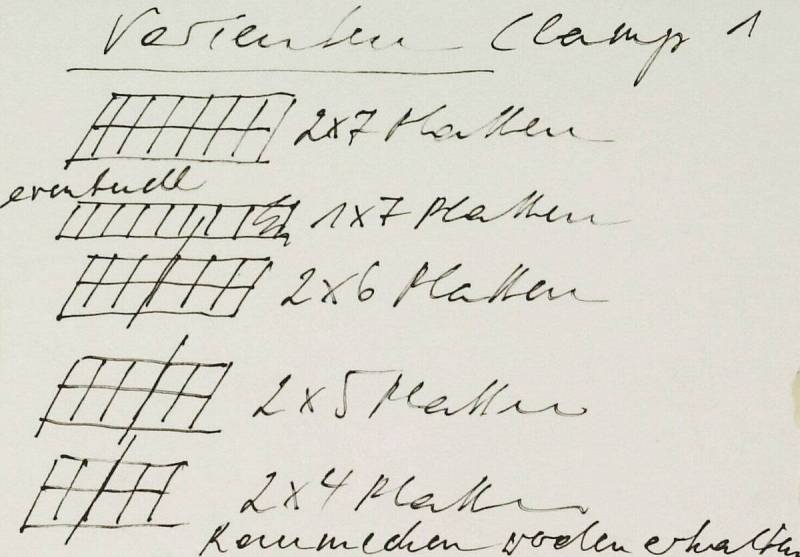 Varianten Clamp 1
2x7 Platten
eventuell
1x7 Platten
2x6 Platten
2x5 Platten
2x4 Platten
werden erhalten